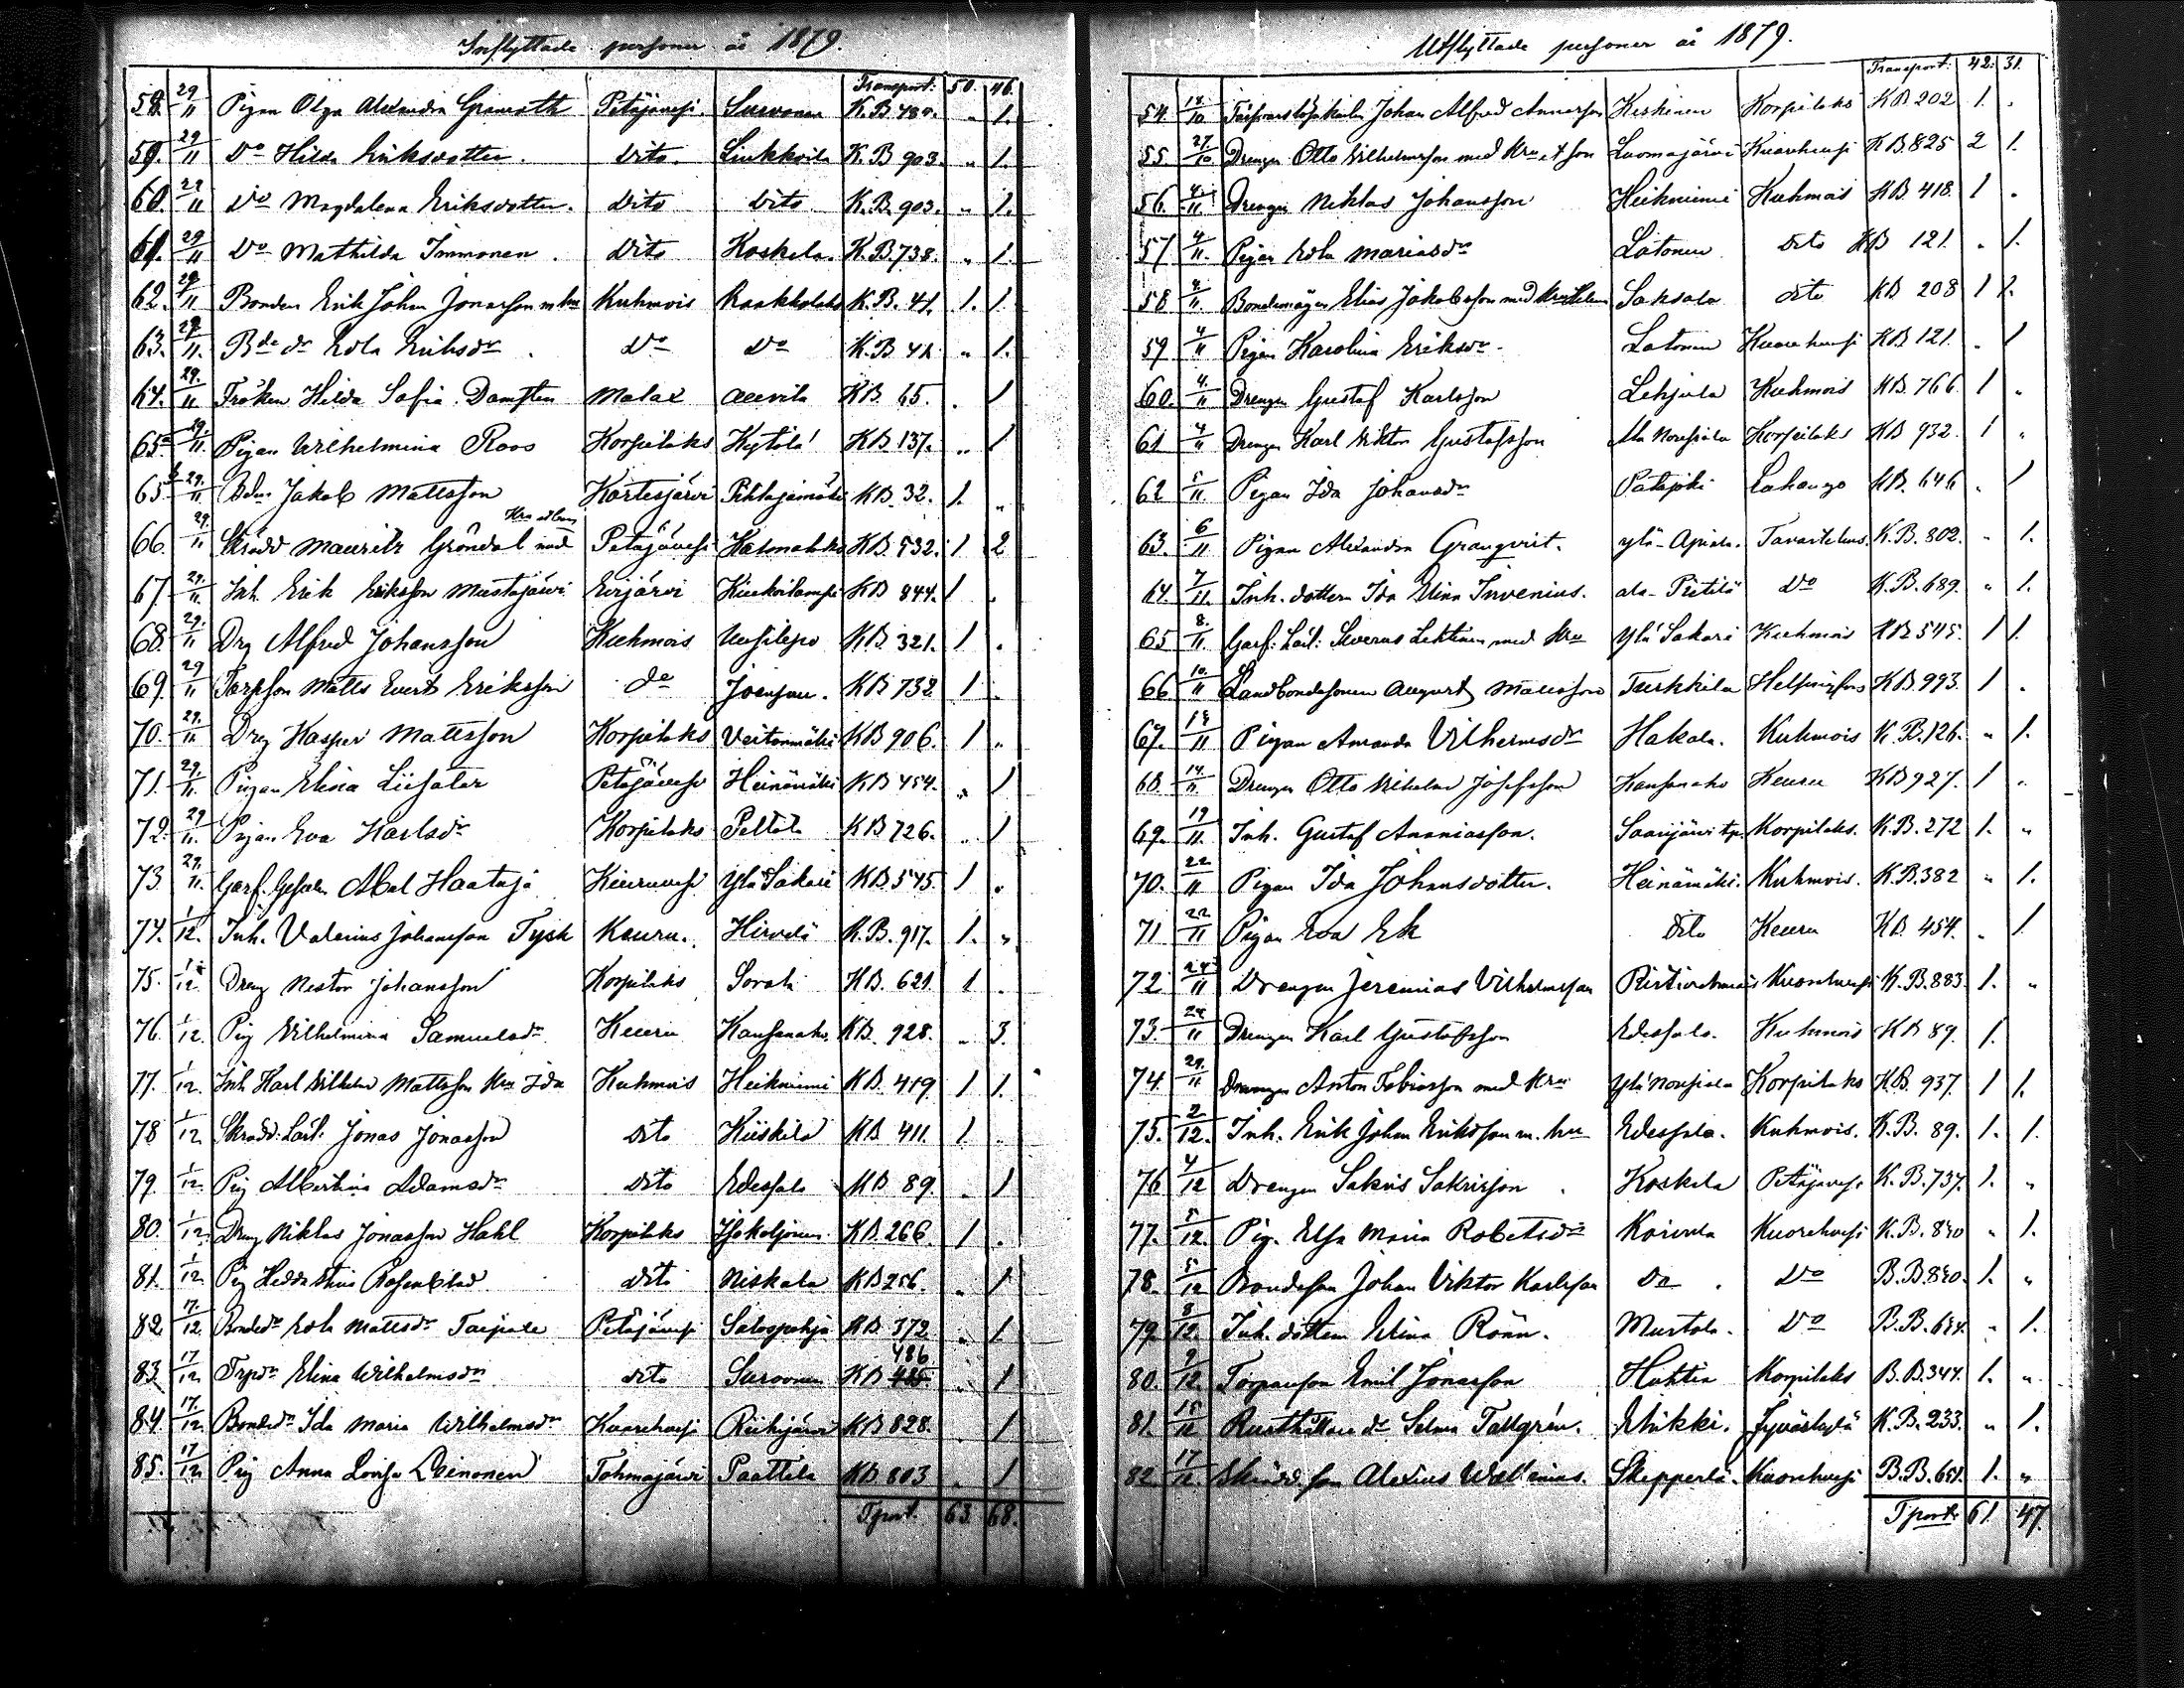 Inflyttade personer år 1879.
Transport: 50. 46.
58. 29/11 Pigan Olga Alexandra Granroth Petäjävesi. Survonen K.B. 480. „ 1.
59. 29/11 Do Hilda Eriksdotter. Dito. Liukkoila K.B. 903. „ 1.
60. 29/11 Do Magdalena Eriksdotter. Dito Dito K.B. 903. „ 1.
61. 29/11 Do Mathilda Immonen. Dito Koskela. K.B. 738. „ 1.
62. 29/11 Bonden Erik Johan Jonasson m hu Kuhmois K.B. 41. 1. 1.
63. 29/11. Bde dr Edla Eriksdr. Do Do K.B. 41. „ 1.
64. 29./11 Fröken Hilda Sofia Damsten Malax Auvila KB. 65. . 1
65a 29./11. Pigan Wilhelmina Roos Korpilaks Hytölä KB. 137. „ 1
65b 29./11 Bdn Jakob Mattsson Pihlajamäki KB. 32. 1. „
Hru o barn
66. 29./11 Skrädd Mauritz Gröndal med Petäjävesi KB. 532. 1 2
67. 29./11. Inh. Erik Eriksson Mustajärvi Evijärvi KB 844. 1 .
68. 29./11 Drg Alfred Johansson Kuhmois Uusilepo KB. 321. 1 .
69. 29/11 Torpson Matts Evert Eriksson do Joensuu. KB 732 1 .
70. 29./11 Drg Kasper Mattsson Korpilaks Veitonmäki KB 906. 1 „
71. 29./11. Pigan Elina Liisatar Petäjävesi Heinämäki KB 454. „ 1
72. 29/11. Pigan Eva Karlsdr Korpilaks Peltola KB 726. „ 1
73 29./11. Garf. Gesälen Abel Haataja Kiuruvesi Ylä Sakari KB. 545. 1 „
74. 1/12. Inh. Valerius Johansson Tysk Keuru. Hirvelä K.B. 917. 1. „
75. 1/12 Dreng Nestor Johansson Korpilaks Sorali KB. 621. 1 .
76. 1/12. Pig Vilhelmina Samuelsdr Keuru Kansanaho. KB. 928. „ 3.
77. 1/12. Inh. Karl Wilhelm Mattsson Hru Ida Kuhmois Heikniemi KB. 419. 1 1.
78 1/12. Skrädd: Lärl: Jonas Jonasson Dito Kiiskilä KB 411. 1 .
79. 1/12. Pig Albertina Adamsdr Dito Edessalo KB 89. „ 1
80. 1/12. Dreng Niklas Jonasson Hahl Korpilaks KB. 266. 1 .
81. 1/12. Pig Hedda Stina Rosenblad Dito Niskala KB 256. „ 1
82 17./12. Bondedr Edla Mattsdr Taipale Petäjävesi Salospohja KB 372 „ 1
83. 17/12. Trpdr Elina Wilhelmsdr dito Survonen KB 486 „ 1
84. 17./12. Bondedr Ida Maria Wilhelmsdr Kuorehvesi Riihijärvi KB 828. . 1
85. 17/12. Pig Anna Lovisa Leinonen Tohmajärvi Paattila KB 803 . 1
Tport. 63. 68.
Utflyttade personer år 1879.
Transport: 42. 31.
54. 18./10 Johan Alfred Annasson Keskinen Korpilaks KB 202 1. .
55. 27./10 Drengen Otto Wilhelmsson med Hru o 1 son Luomajärvi Kuorehvesi KB. 825 2 1.
56. 4/11. Drengen Niklas Johansson Heikniemi Kuhmois KB. 418. 1 „
57. 4/11. Pigan Edla Mariasdr Latonen Dito KB 121. „ 1.
58 4/11. Bondemågen Elias Jakobsson med Hru Helena Saksala dito KB 208 1 1.
59 4/11 Pigan Karolina Eriksdr. Latonen Kuorehvesi KB 121. „ 1
60. 4./11 Drengen Gustaf Karlsson Lehjula Kuhmois KB. 766. 1 „
61 4/11 Drengen Karl Viktor Gustafsson Ala Noussiala Korpilaks KB 932. 1 „
62 5/11. Pigan Ida Johansdr Patajoki KB. 646 . 1
63. 6/11 Pigan Alexandra Granqvist. Ylä-Apiala. Tavastehus. K.B. 802. „ 1.
64. 7/11. Inh. dottern Ida Elina Invenius. ala-Pietilä Do K.B. 689. „ 1.
65 8./11 Garf: Lärl: Severus Lehtinen med Hru Ylä Sakari Kuhmois KB 545. 1 1.
66 10./11 Landbondesonen August Mattsson Turkkila Helsingfors KB. 993. 1 .
67. 14/11 Pigan Amanda Vilhelmsdr Hakala. Kuhmois K.B. 126. „ 1.
68. 14./11. Drengen Otto Wilhelm Josefsson Kansanaho Keuru KB 927. 1 .
69. 19/11. Inh. Gustaf Ananiasson. Saarijärvi tp. Korpilaks. K.B. 272 1. „
70. 22/11 Pigan Ida Johansdotter. Heinämäki. Kuhmois. K.B. 382 „ 1.
71 22/11 Pigan Eva Ek Dito Keuru KB 454. „ 1.
72. 24/11 Drengen Jeremias Vilhelmsson Kuorehvesi K.B. 883. 1. „
73. 24/11 Drengen Karl Gustafsson Edessalo. Kuhmois KB 89. 1.
74. 29./11 Drengen Anton Tobiasson med Hru Ylä Noussiala Korpilaks KB. 937. 1 1.
75. 2/12. Inh. Erik Johan Eriksson m. hu Edessalo. Kuhmois. K.B. 89. 1. 1.
76 4/12 Drengen Sakris Sakrisson Koskela Petäjävesi K.B. 737. 1. „
77. 5/12. Pig. Elsa Maria Robetsdr Koivula Kuorehvesi K.B. 840 „ 1.
78. 5/12 Bondeson Johan Viktor Karlsson Do Do B.B. 840. 1. „
79 8/12. Inh. dottern Elina Rönn. Murtola. Do B.B. 654. „ 1.
80. 9/12. Torparson Emil Jonasson Huhtia Korpilaks B.B. 347. 1. „
81. 15/12 Rusthållare dr Selma Tallgrén. Uhikki. Jyväskylä K.B. 233. „ 1.
82. 17/12. Skrädd. son Alexius Wallenius. Skipperlä. Kuorehvesi B.B. 651. 1. „
Tport. 61. 47.